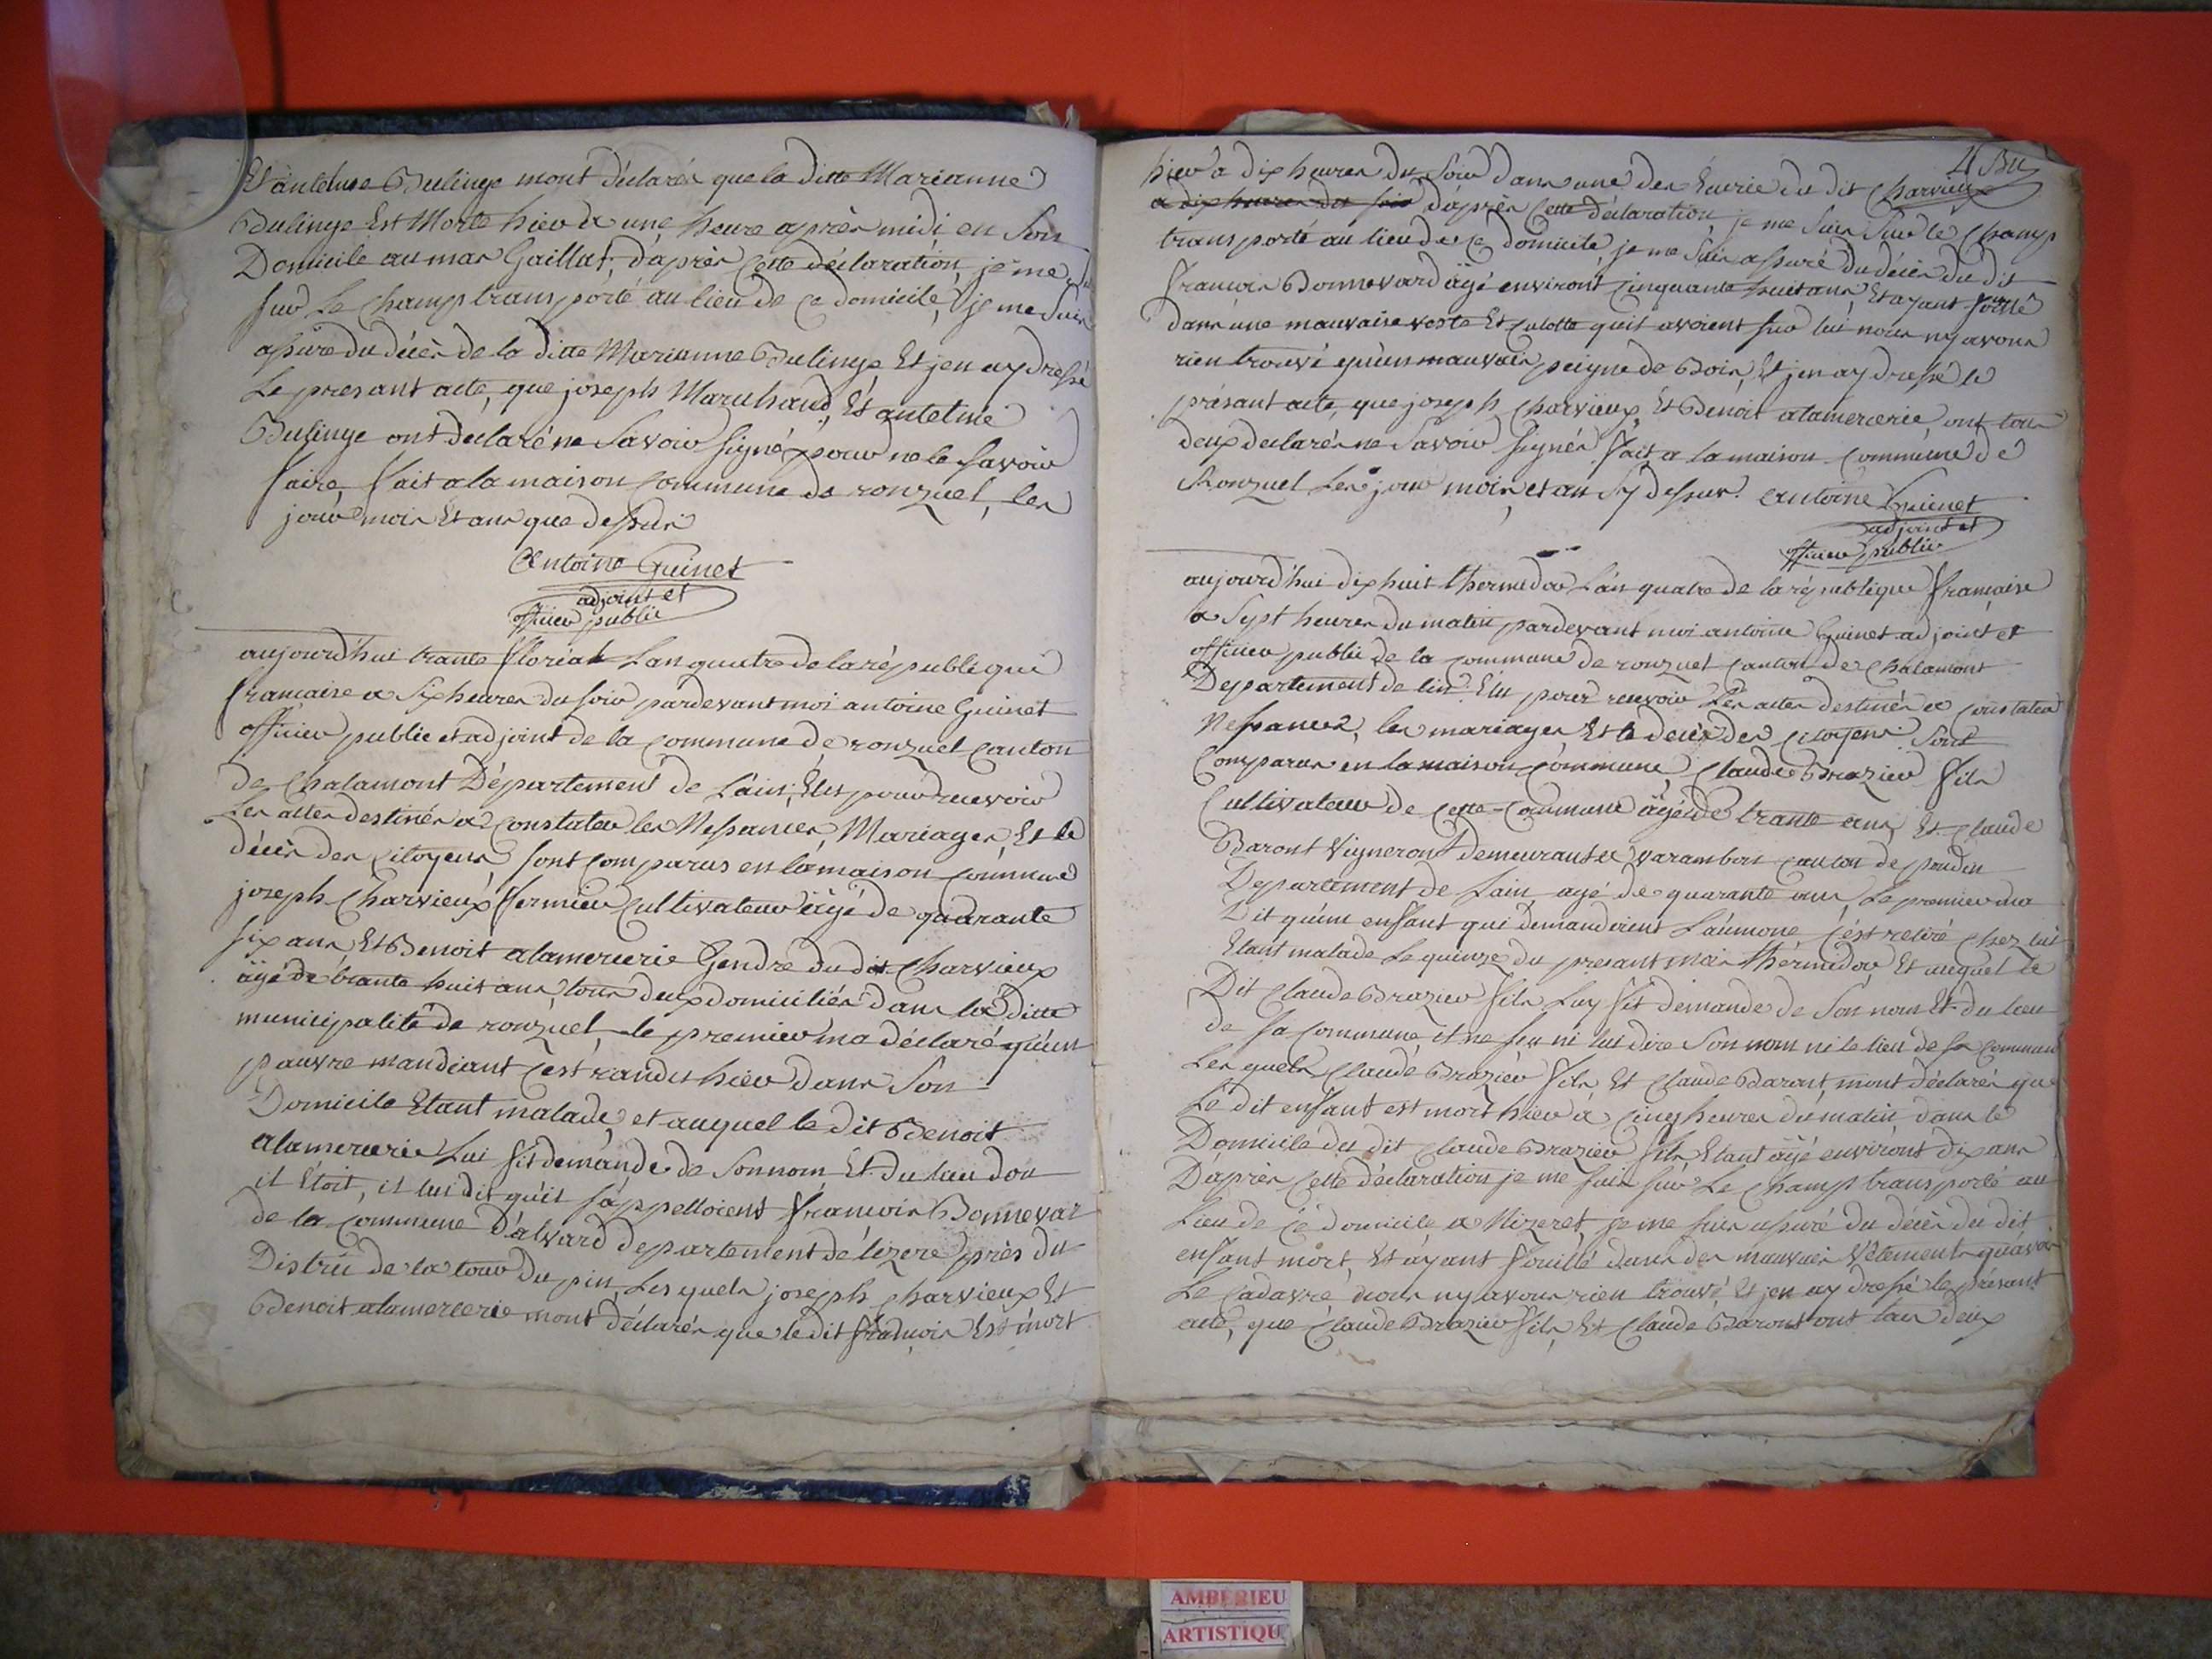 Et anteleme Bulinge mont déclarés que la ditte Marianne
Bulinge Est Morte hier a une heure après midi en Son
Domicile au mas Gaillat, d'après Cette déclaration, je me
sur Le Champ transporté au lieu de ce domicile, je me Suis
assuré du décès de la ditte Marianne Bulinge Et jen ay dressé
Le presant acte, que joseph Marchand, Et antelme
Bulinge ont declaré ne Savoir Signé pour ne le Savoir
faire, fait a la maison Commune de ronzuel, les
jour mois Et ans que dessus
Antoine Guinet
adjoint et
officier public
aujourd'hui trante floréal Lan quatre de la république
francaise a Six heures du soir pardevant moi antoine Guinet
officier public et adjoint de la commune de ronzuel canton
de Chalamont Département de Lain, Elus pour recevoir
Les actes destinés a Constater les Nessances, Mariages, Et le
décès des Citoyens, sont comparus en la maison commune
joseph Charvieux fermier Cultivateur âgé de quarante
six ans Et Benoit alamercerie Gendre du dit Charvieux
âgé de trante huit ans, tous deux domiciliés dans la ditte
municipalité de ronzuel, le premier ma déclaré qu'un
pauvre mandiant c'est randu hier dans Son
Domicile Etant malade, et auquel le dit Benoit
alamercerie Lui fit demande de Son nom Et du lieu dou
il Etoit, il lui dit qu'il s'appelloient francois Bonnevar
de la commune D'alvard departement de lizere près du
District de la tour du pin, Les quels joseph Charvieux Et
Benoit alamercerie mont déclarés que le dit francois Est mort
4 Bu
hier à dix heures du Soir dans une des Ecurie du dit Charvieux
a dix heures du soir d'après Cette déclaration, je me suis Sur le Champ
transporté au lieu de ce domicile, je me Suis assuré du décès du dit
francois Bonnevard âgé environt cinquante huit ans, Et ayant fouillé
dans une mauvaise veste Et culotte quil avoient sur lui nous ny avons
rien trouvé qu'un mauvais peigne de Bois, Et jen ay dressé le
présant acte, que joseph Charvieux Et Benoit alamercerie, ont tous
deux declarés ne Savoir Signés fait a la maison commune de
Ronzuel Les jour mois, et an Sy dessus. antoine Guinet
adjoint et
officier public
aujourd'hui dix huit thermidor Lan quatre de la république française
a Sept heures du matin pardevant moi antoine Guinet adjoint et
officier public de la commune de ronzuel canton de Chalamont
Departement de lin. Elu pour recevoir Les actes destinés a constater
Nessances, les mariages Et le décès des citoyens Sont
Comparus en la maison commune, Claude Brazier fils
Cultivateur de cette Commune âgé de trante ans, Et Claude
Baront Vigneront demeurant a varambon canton de pondin
Departement de Lain, agé de quarante ans, Le premier ma
Dit qu'un enfant qui demandoient L'aumone, c'est retiré chez lui
Etant malade Le quinze du presant mois thermidor, Et auquel le
Dit Claude Brazier fils Luy fit demande de Son nom Et du lieu
de sa commune, il ne seu ni lui dire Son nom ni le lieu de sa commun
Les quels Claude Brazier fils Et Claude Baront, mont déclarés que
Le dit enfant est mort hier à cinq heures du matin dans le
Domicile du dit Claude Brazier fils Etant âgé environt dix ans
D'après Cette déclaration je me suis sur Le Champ transporté au
Lieu de ce domicile a Mizeret, je me suis assuré du décès du dit
enfant mort, Et ayant fouillé dans des mauvais Vetements qu'avoi
Le Cadavre nous ny avons rien trouvé Et jen ay dressé le présant
acte, que Claude Brazier fils, Et Claude Baront ont tous deux
AMBERIEU
ARTISTIQU